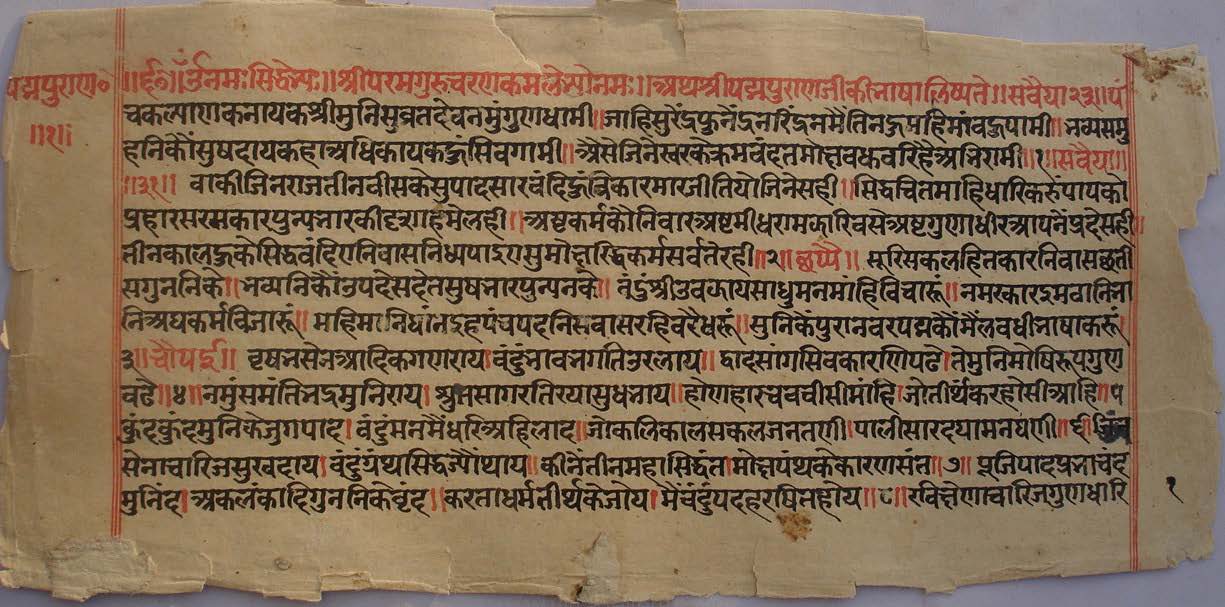 पद्मपुराण०
॥१॥
॥र्द०॥ ॐ नमः सिद्धेभ्यः॥ श्रीपरमगुरुचरणकमलेभ्योनमः॥ अथश्रीपद्मपुराणजीकीभाषालिष्यते॥ सवैया २३॥ पं
चकल्याणकनायकश्रीमुनिसुव्रतदेवनमुंगुणधामी॥ जाहिसुरेंद्र नरिंद्रनमैं महिमां पामी॥ भव्यसमु
हनिकौंसुषदायक अधिकायक सिवगामी॥ अैसेजिनेस्वरके वंदत अभिरामी॥१॥ सवैया॥
॥३१॥ वाकीजिनराजतीनवीसकेसुपादसारवंदिहुं विकारमारजीति सही॥ सिद्धचितमाहिधारिकरुंपापको
प्रहारसर पुन्यभारकी लही॥ अष्टकर्मकौनिवारअष्टमीधरामझारिवसेअष्टगुणाधीरआपनैप्रदेसही
तीनकालहुकेसिद्धवंदि निवास कर्मसर्वतेरही॥२॥ छप्पै॥ सूरिसकलहितकारनिवासछती
सगुननिके॥ भव्यनिकौंउपदेसदेतसुषभारपुन्यनके॥ वंदुंश्रीउवझायसाधुमनमाहिविचारूं॥ नमस्कार
निअघकर्मविडारूं॥ महिमानिधांनइहपंचपदनिसवासरहिवरैधरूं॥ सुनिकैंपुरानवरपद्मकौंमैंलवधीभाषाकरूं॥
३॥ चौपई॥ वृषभसेनआदिकगणराय॥ वंदुंभाव उरलाय॥ द्वादसांगसिवकारणिपढै॥ तेमुनिमोषि गुण
वढै॥४॥ नमुंसमंतिभद्रमुनिराय॥ श्रुतसागर ॥ होणहारचववीसीमांहि॥ जोतीर्थंकरहोसीआहि॥५
कुंदकुंदमुनिकेजुगपाद॥ वंदुंमनमैधरिअहिलाद॥ जोकलिकालसकलजनतणी॥ पालीसारदयामनघणी॥६॥ जिन
सेनाचारिजसुखदाय॥ वंदुंग्रंथसिद्ध थाय॥ कीनेंतीनमहासिद्धंत॥ मोक्षपंथकेकारणसंत॥७॥ पूजिपादप्रभाचंद
मुनिंद॥ अकलंकादिगुननिकेवृंद॥ करताधर्मतीर्थकेजोय॥ मैंवंदुंपदहरषितहोय॥८॥ रविषेणाचारिजगुणधारि
१